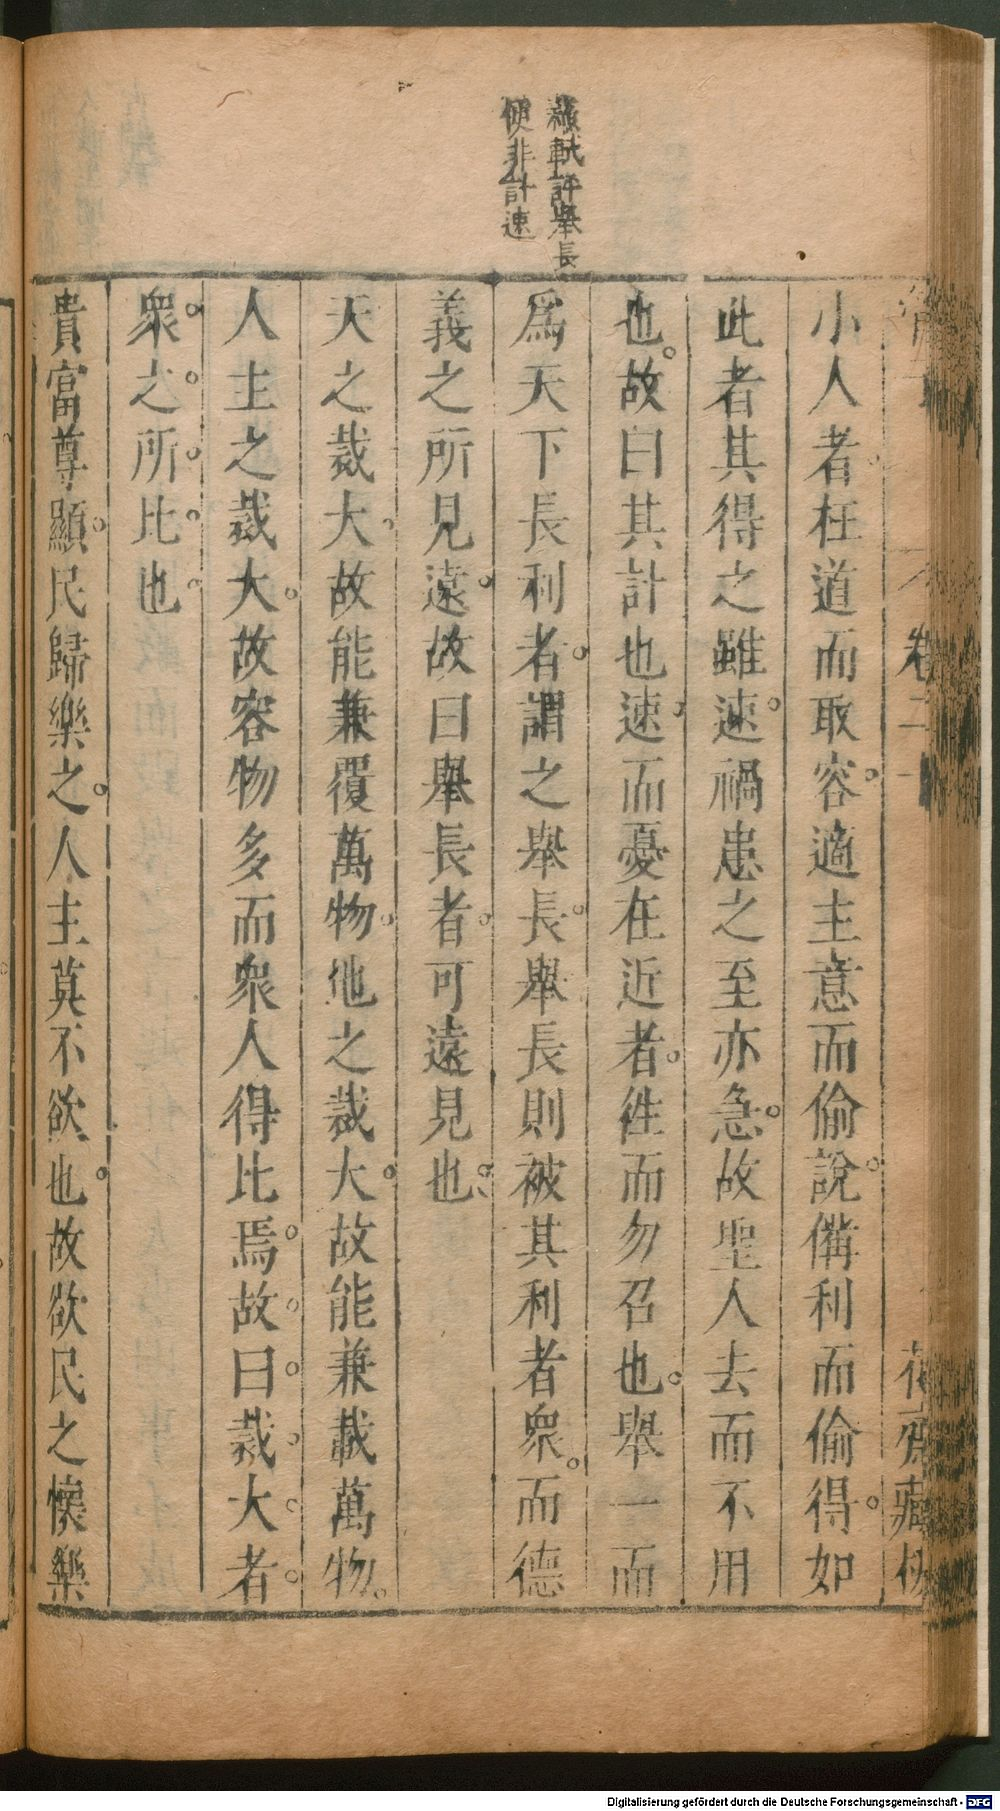 蘇軾評舉長
便非計速
小人者枉道而取容適主意而偷說備利而偷得如
此者其得之雖速禍患之至亦急故聖人去而不用
也故曰其計也速而憂在近者往而勿召也舉一而
爲天下長利者謂之舉長舉長則被其利者衆而德
義之所見遠故曰舉長者可遠見也
天之裁大故能兼覆萬物地之裁大故能兼載萬物
人主之裁大故容物多而衆人得比焉故曰裁大者
衆之所比也
貴富尊顯民歸樂之人主莫不欲也故欲民之懷樂
卷二
花齋藏板
Digitalisierung gefördert durch die Deutsche Forschungsgemeinschaft - DFG